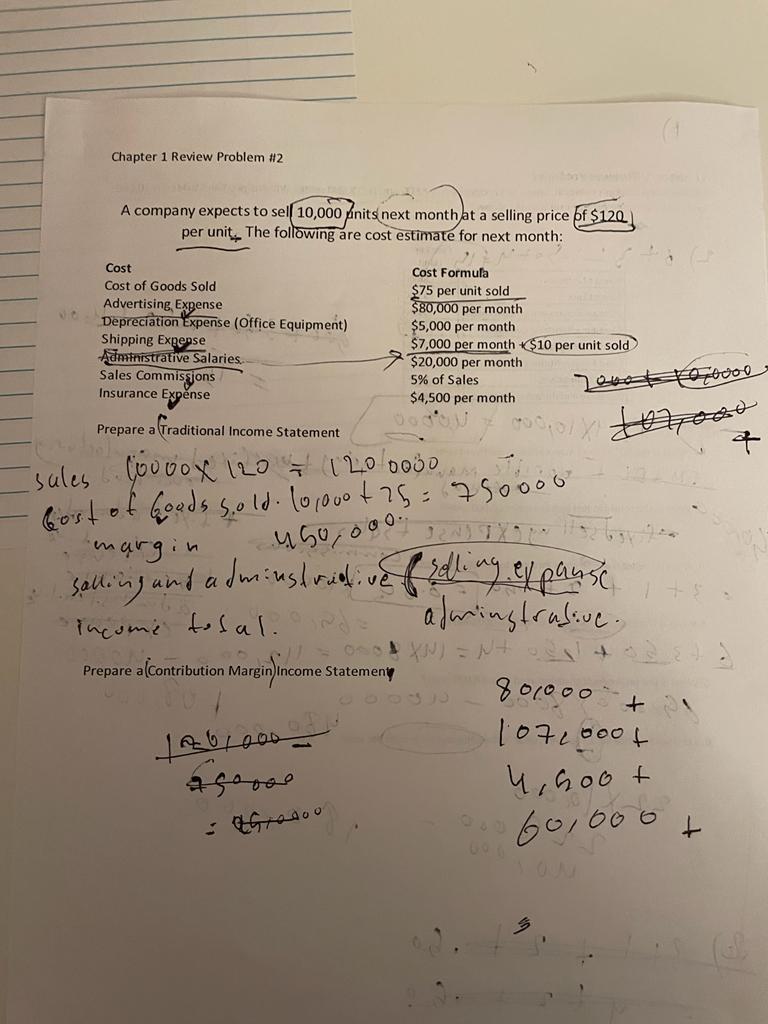 Chapter 1 Review Problem #2
A company expects to sell 10,000 units next month at a selling price of $120
per unit. The following are cost estimate for next month:
Cost Cost Formula
Cost of Goods Sold $75 per unit sold
Advertising Expense $80,000 per month
Depreciation Expense (Office Equipment) $5,000 per month
Shipping Expense $7,000 per month + $10 per unit sold
Administrative Salaries $20,000 per month
Sales Commissions 5% of Sales
Insurance Expense $4,500 per month
107,000
+
Prepare a Traditional Income Statement
sales 10000 x 120 = 1200000
Cost of Goods sold. 10,000 + 75 = 750000
margin 450,000
selling and adminstrative selling expanse
adminstrative.
income total.
Prepare a (Contribution Margin) Income Statement
80,000 +
107,000 +
4,500 +
60,000 +